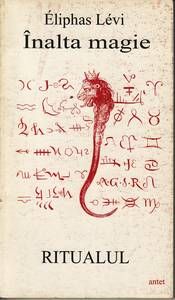 Éliphas Lévi
Înalta magie
A.G.S.R
RITUALUL
antet